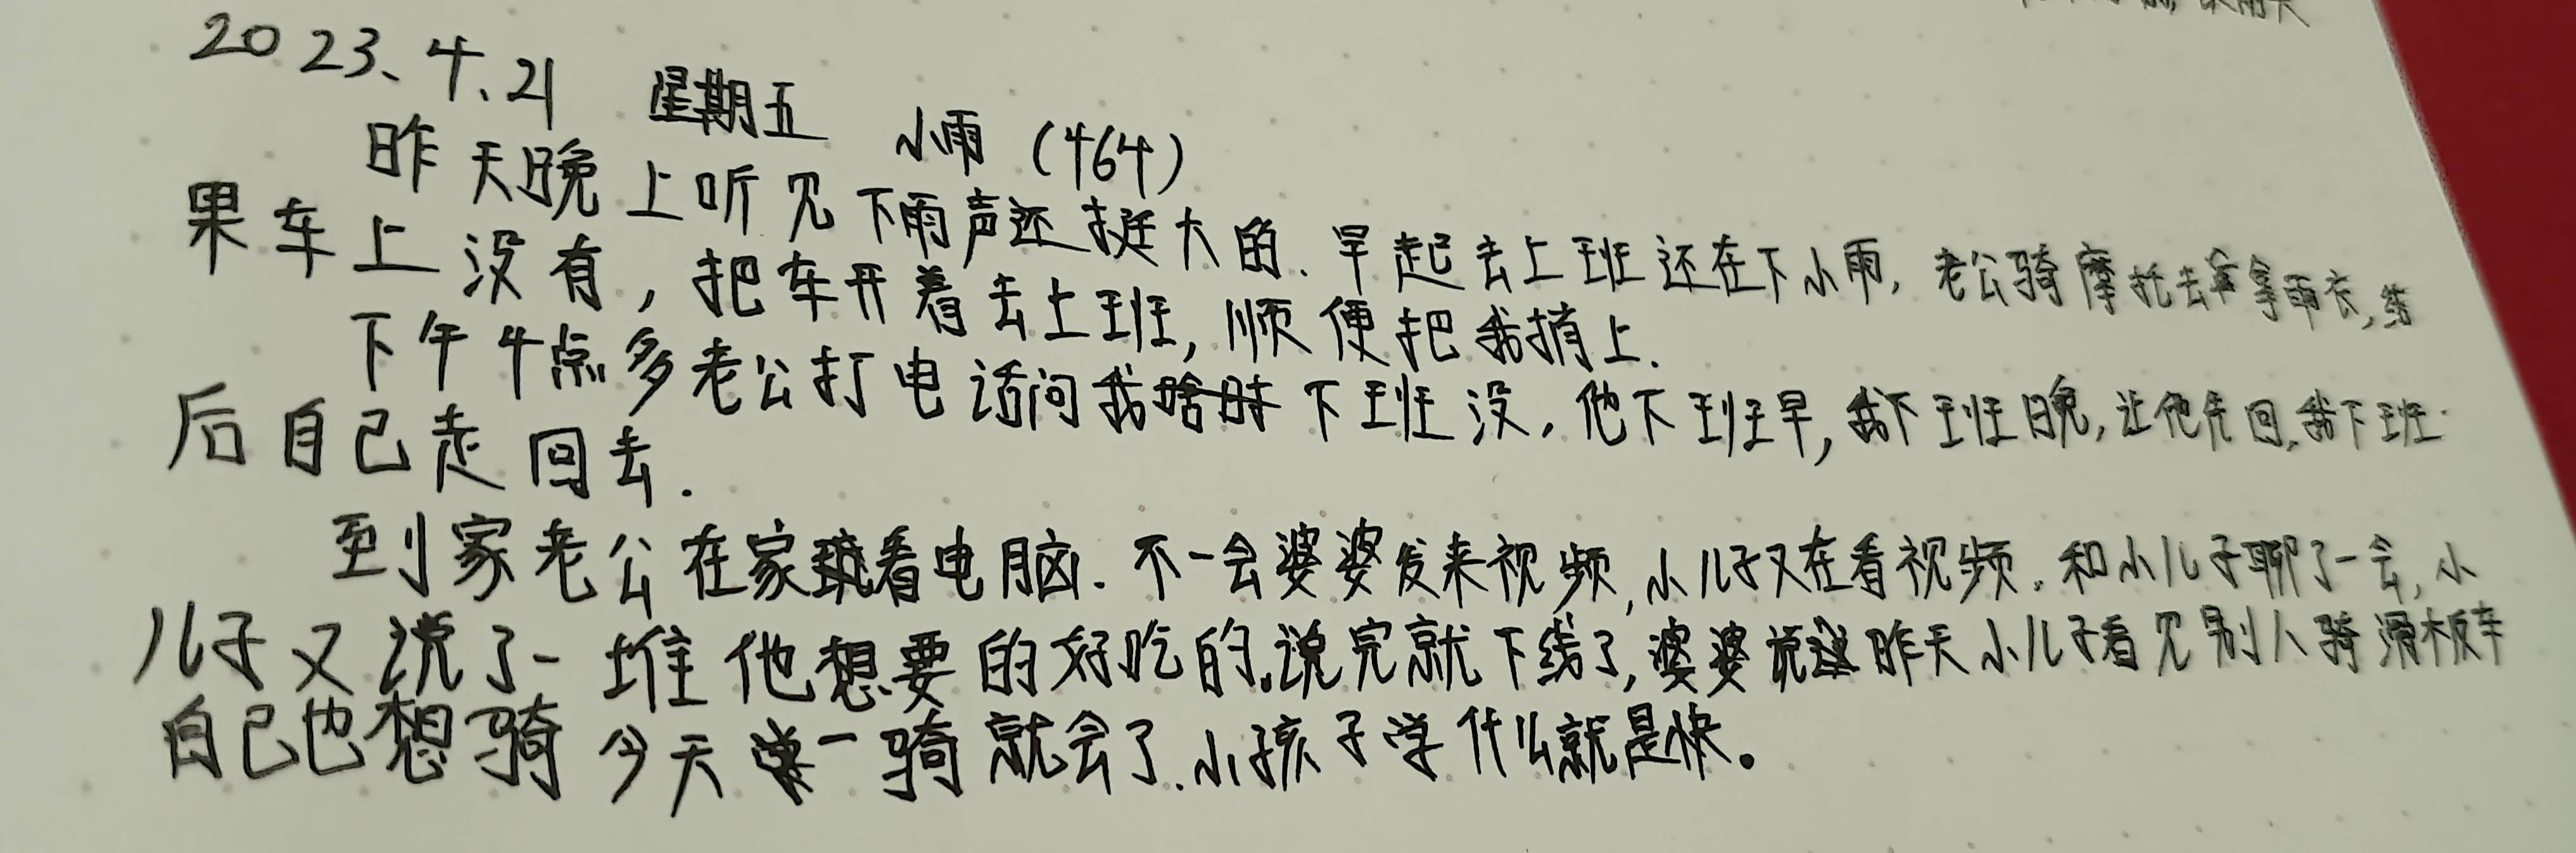 2023、4、21 星期五 小雨（464）
昨天晚上听见下雨声还挺大的.早起去上班还在下小雨,老公骑摩托去拿雨衣,结
果车上没有,把车开着去上班,顺便把我捎上.
下午4点多老公打电话问我啥时下班没,他下班早,我下班晚,让他先回,我下班
后自己走回去.
到家老公在家看电脑.不一会婆婆发来视频,小儿子又在看视频.和小儿子聊了一会,小
儿子又说了一堆他想要的好吃的.说完就下线了,婆婆说昨天小儿子看见别人骑滑板车
自己也想骑今天一骑就会了.小孩子学什么就是快。